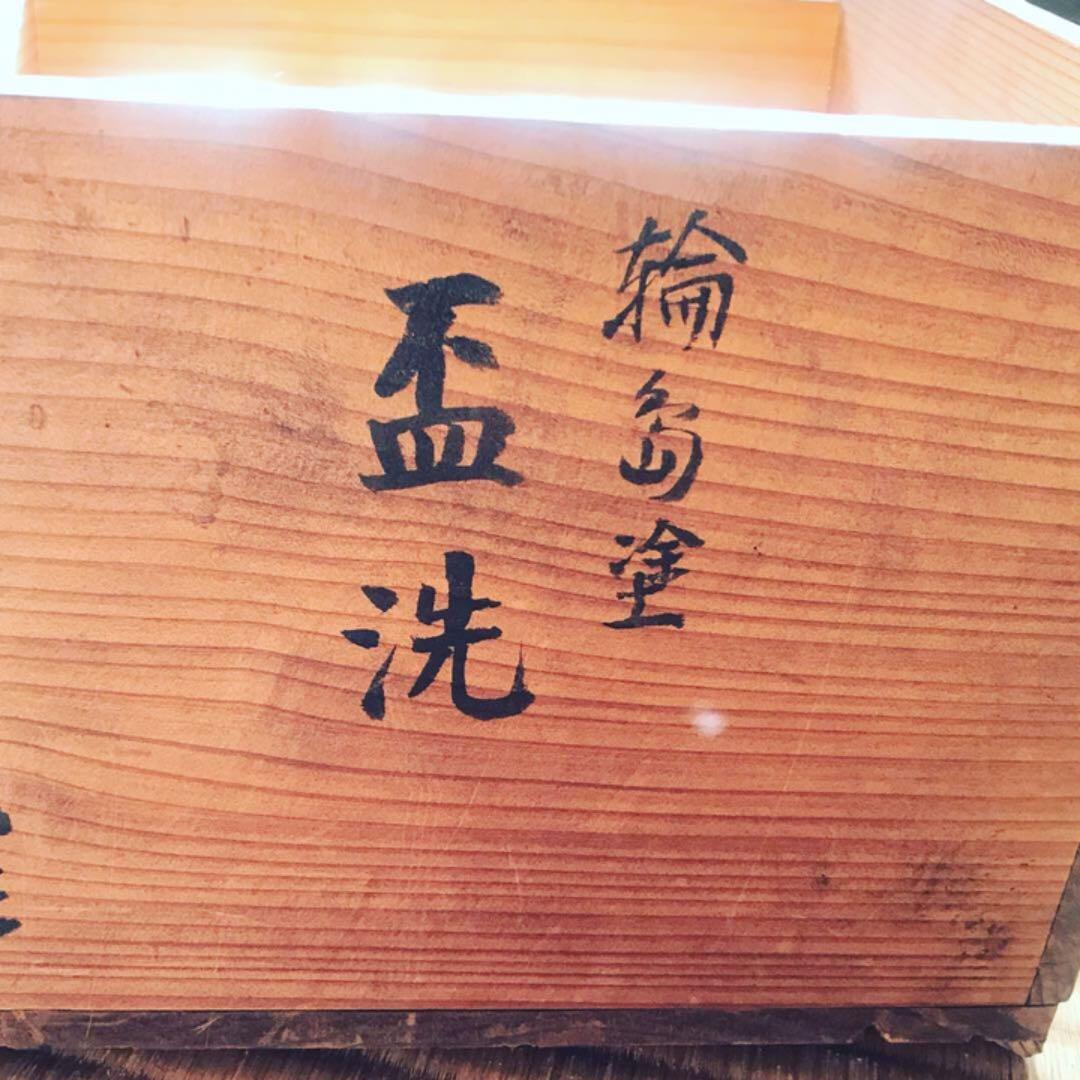 輪島塗
盃洗